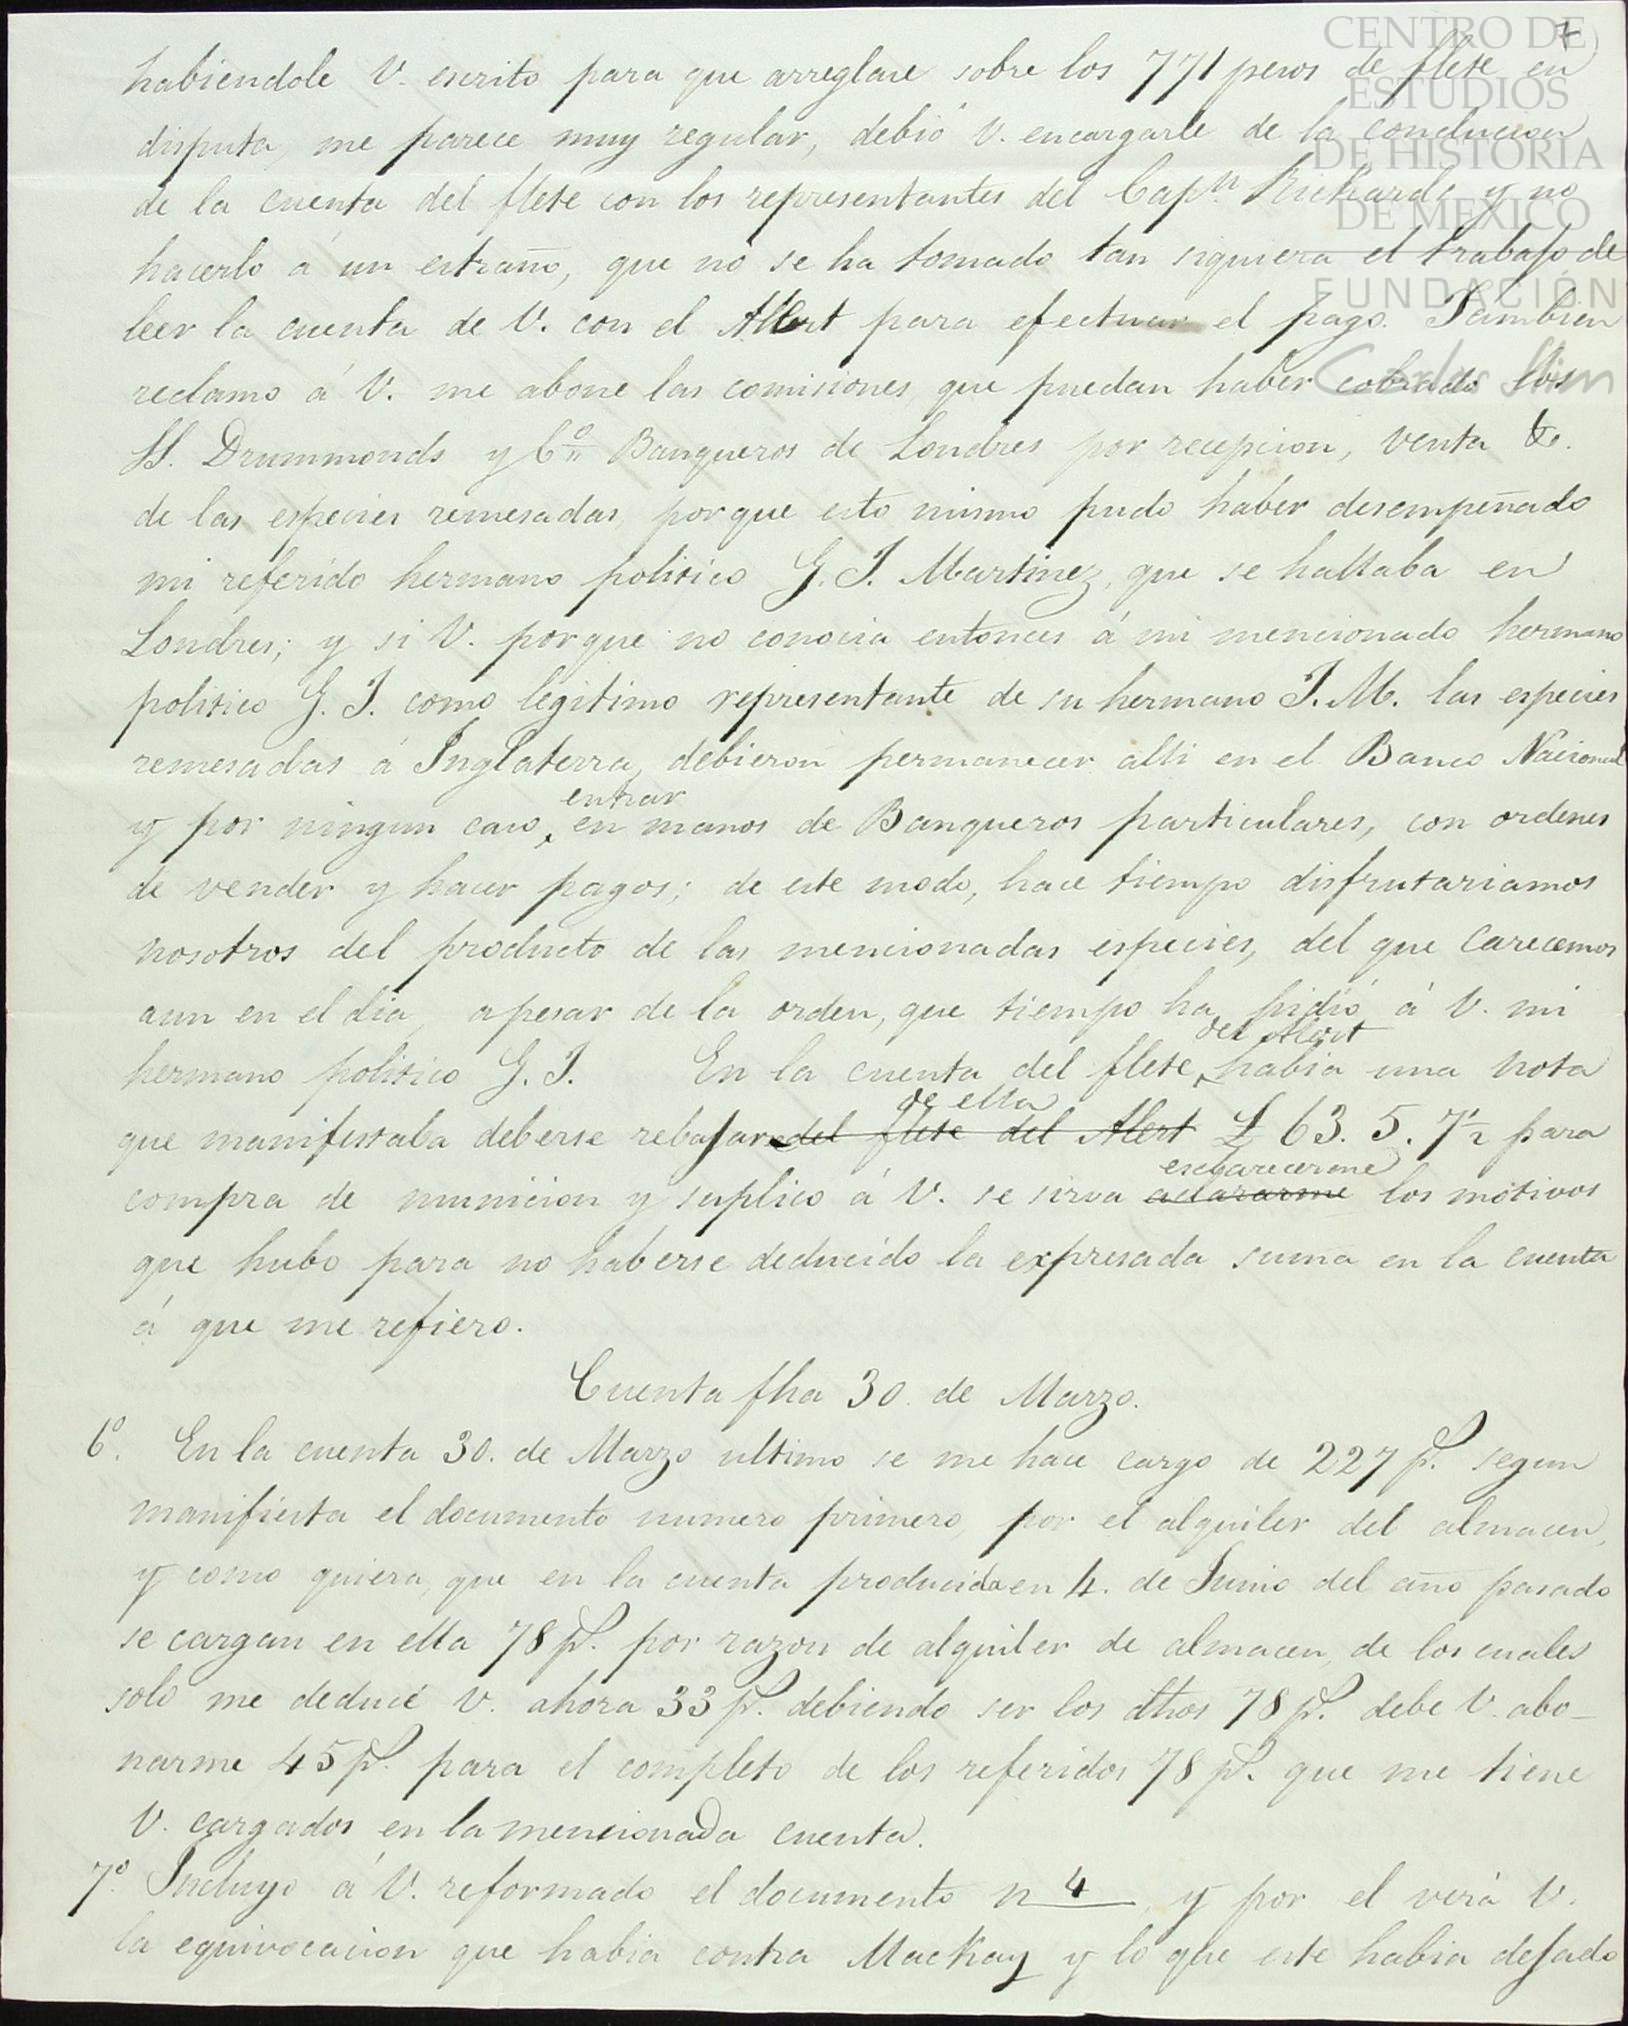 7
habiendole V. escrito para que arreglase sobre los 771 pesos de flete en
disputa, me parece muy regular, debió V. encargarle de la conduccion
de la cuenta del flete con los representantes del Capn. Richards y no
hacerlo á un estraño, que no se ha tomado tan siquiera el trabajo de
leer la cuenta de V. con el Alert para efectuar el pago. Tambien
reclamo á V. me abone las comisiones, que puedan haber cobrado los
SS. Drummonds y Co. Banqueros de Londres por recepcion, venta &c.
de las especies remesadas, porque esto mismo pudo haber desempeñado
mi referido hermano politico G. J. Martinez, que se hallaba en
Londres; y si V. porque no conocia entonces á mi mencionado hermano
politico G. J. como legitimo representante de su hermano J. M. las especies
remesadas á Inglaterra, debieron permanecer alli en el Banco Nacional
entrar
y por ningun caso, en manos de Banqueros particulares, con ordenes
de vender y hacer pagos; de este modo, hace tiempo disfrutariamos
nosotros del producto de las mencionadas especies, del que carecemos
aun en el dia, apesar de la orden, que tiempo ha pidió á V. mi
del Alert
hermano politico G. J. En la cuenta del flete, habia una nota
de ella
que manifestaba deberse rebajar del flete del Alert £ 63. 5. 7½ para
esclarecerme
compra de municion y suplico á V. se sirva aclararme los motivos
que hubo para no haberse deducido la expresada suma en la cuenta
á que me refiero.
Cuenta fha 30. de Marzo.
6º. En la cuenta 30. de Marzo ultimo se me hace cargo de 227 ps. segun
manifiesta el documento numero primero, por el alquiler del almacen,
y como quiera, que en la cuenta producida en 4. de Junio del año pasado
se cargan en ella 78 ps. por razon de alquiler de almacen, de los cuales
solo me deduce V. ahora 33 ps. debiendo ser los dhos 78 ps. debe V. abo-
narme 45 ps. para el completo de los referidos 78 ps. que me tiene
V. cargados en la mencionada cuenta.
7º. Incluyo á V. reformado el documento n 4, y por el verá V.
la equivocacion que habia contra MacKay y lo que este habia dejado
CENTRO DE
ESTUDIOS
DE HISTORIA
DE MEXICO
FUNDACIÓN
Carlos Slim